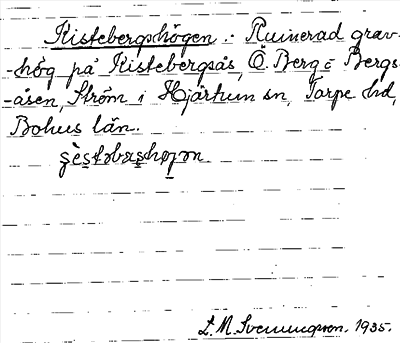 Kistebergshögen.: Ruinerad grav-
-hög på Kistebergsås, Ö. Berg = Bergs-
-åsen, Ström i Hjärtum sn, Torpe hd,
Bohus län.
L. M. Svenungsson. 1935.